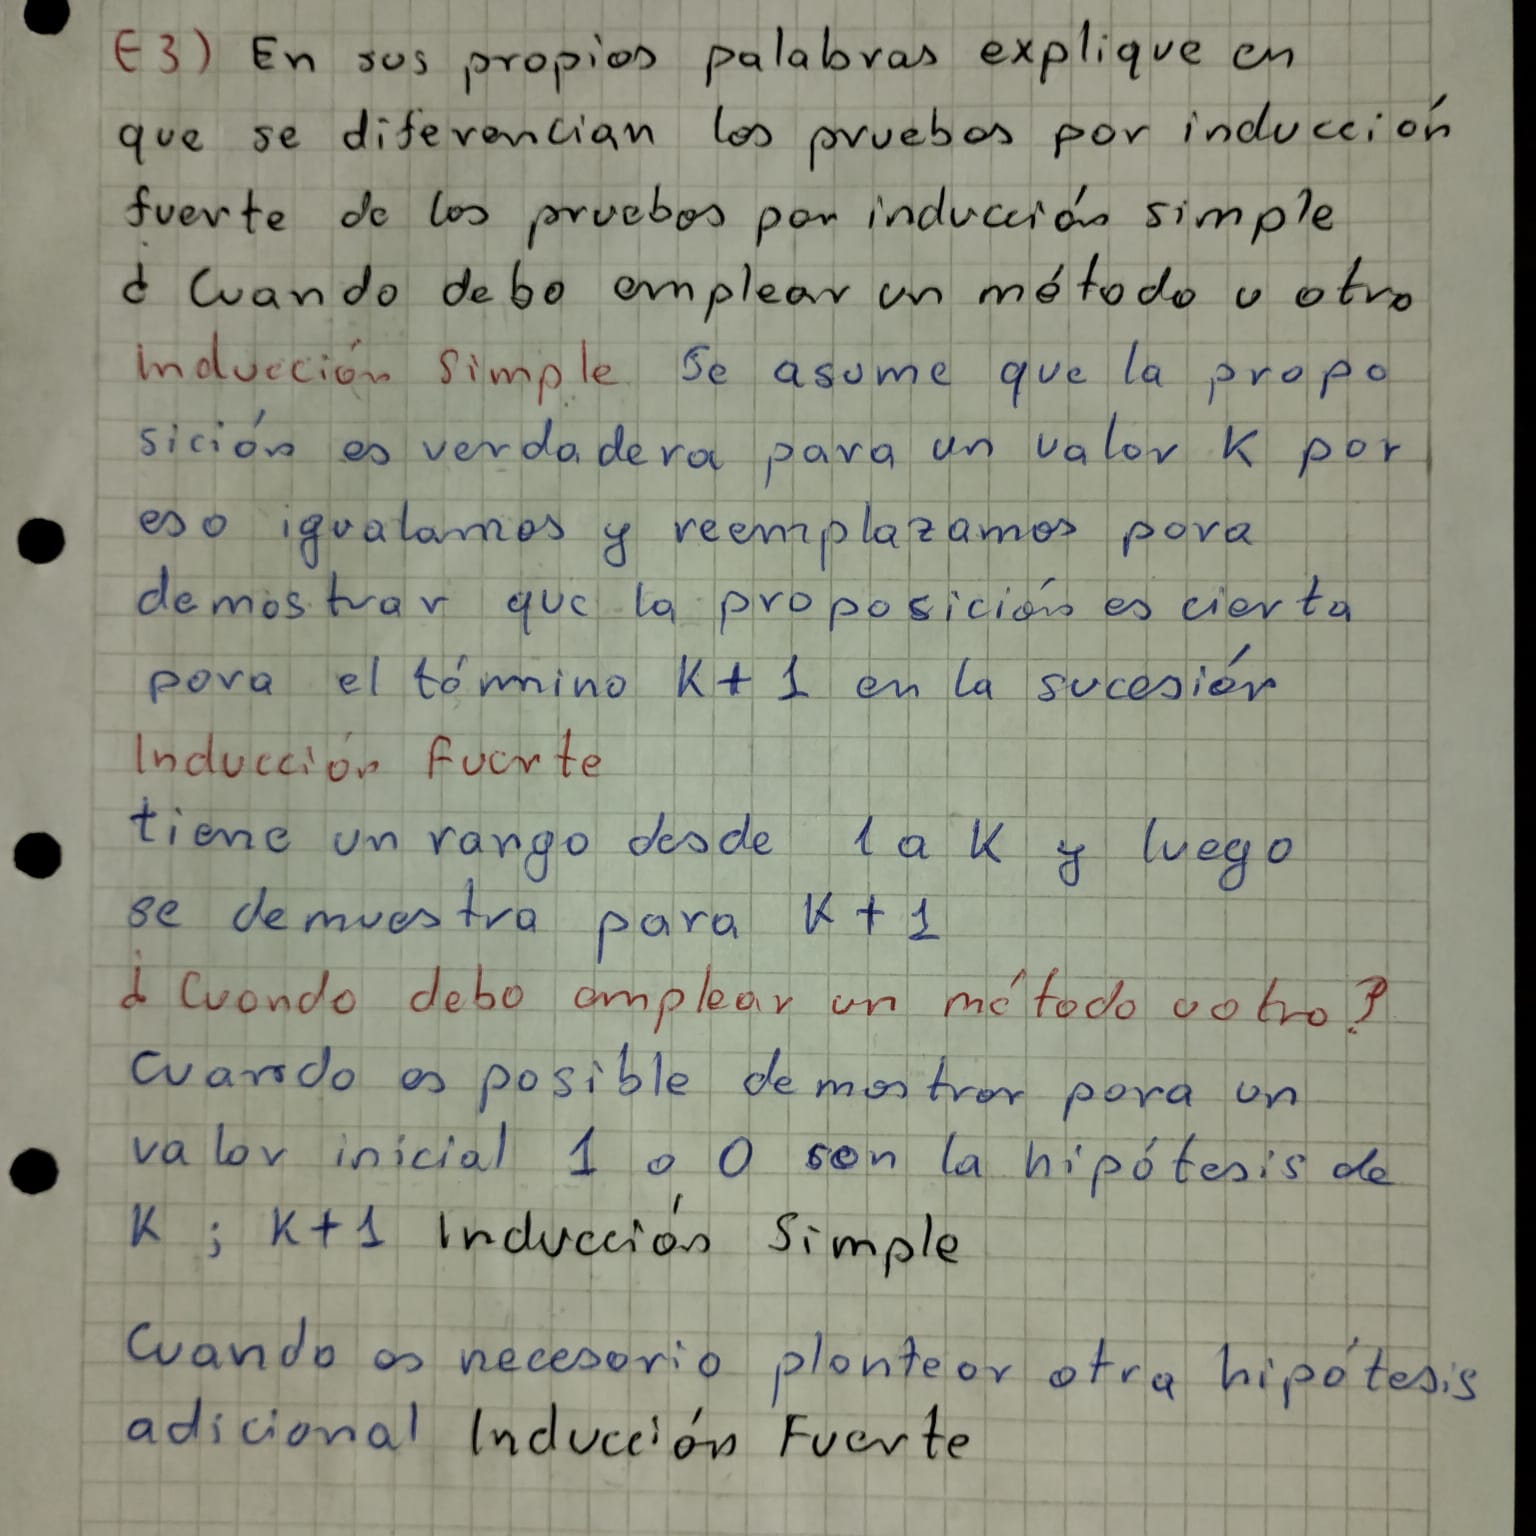 E3) En sus propios palabras explique en
que se diferencian los pruebos por inducción
fuerte de los pruebos por inducción simple
¿ Cuando debo emplear un método u otro
inducción Simple Se asume que la propo
sición es verdadera para un valor K por
eso igualamos y reemplazamos para
demostrar que la proposición es cierta
para el término K+1 en la sucesión
Inducción Fuerte
tiene un rango desde 1 a K y luego
se demuestra para K+1
¿ Cuando debo emplear un método u otro?
Cuando es posible demostrar para un
valor inicial 1 o 0 son la hipótesis de
K ; K+1 Inducción Simple
Cuando es necesario plantear otra hipótesis
adicional Inducción Fuerte